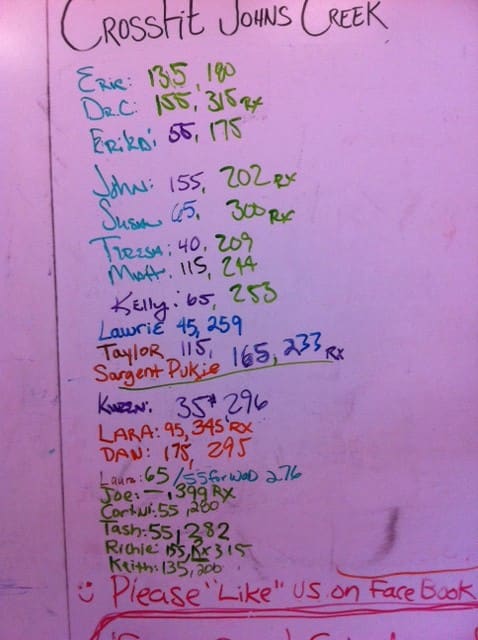 CROSSFIT JOHNS CREEK
ERIC: 135, 180
DR.C: 155, 315 RX
ERIKA: 55, 175
JOHN: 155, 202 RX
SUSAN 65, 300 RX
TERESA: 40, 209
MATT: 115, 244
KELLY: 65, 253
LAWRIE 45, 259
TAYLOR 115,
SARGENT PUKIE 165, 233 RX
35# 296
LARA: 95, 345 RX
DAN: 175, 295
Laura: 65 / 55 for WOD 276
JOE: —, 399 RX
55, 280
TASH: 55, 282
Richie 155, RX 315
Keith: 135, 200
PLEASE "LIKE" US ON FACEBOOK